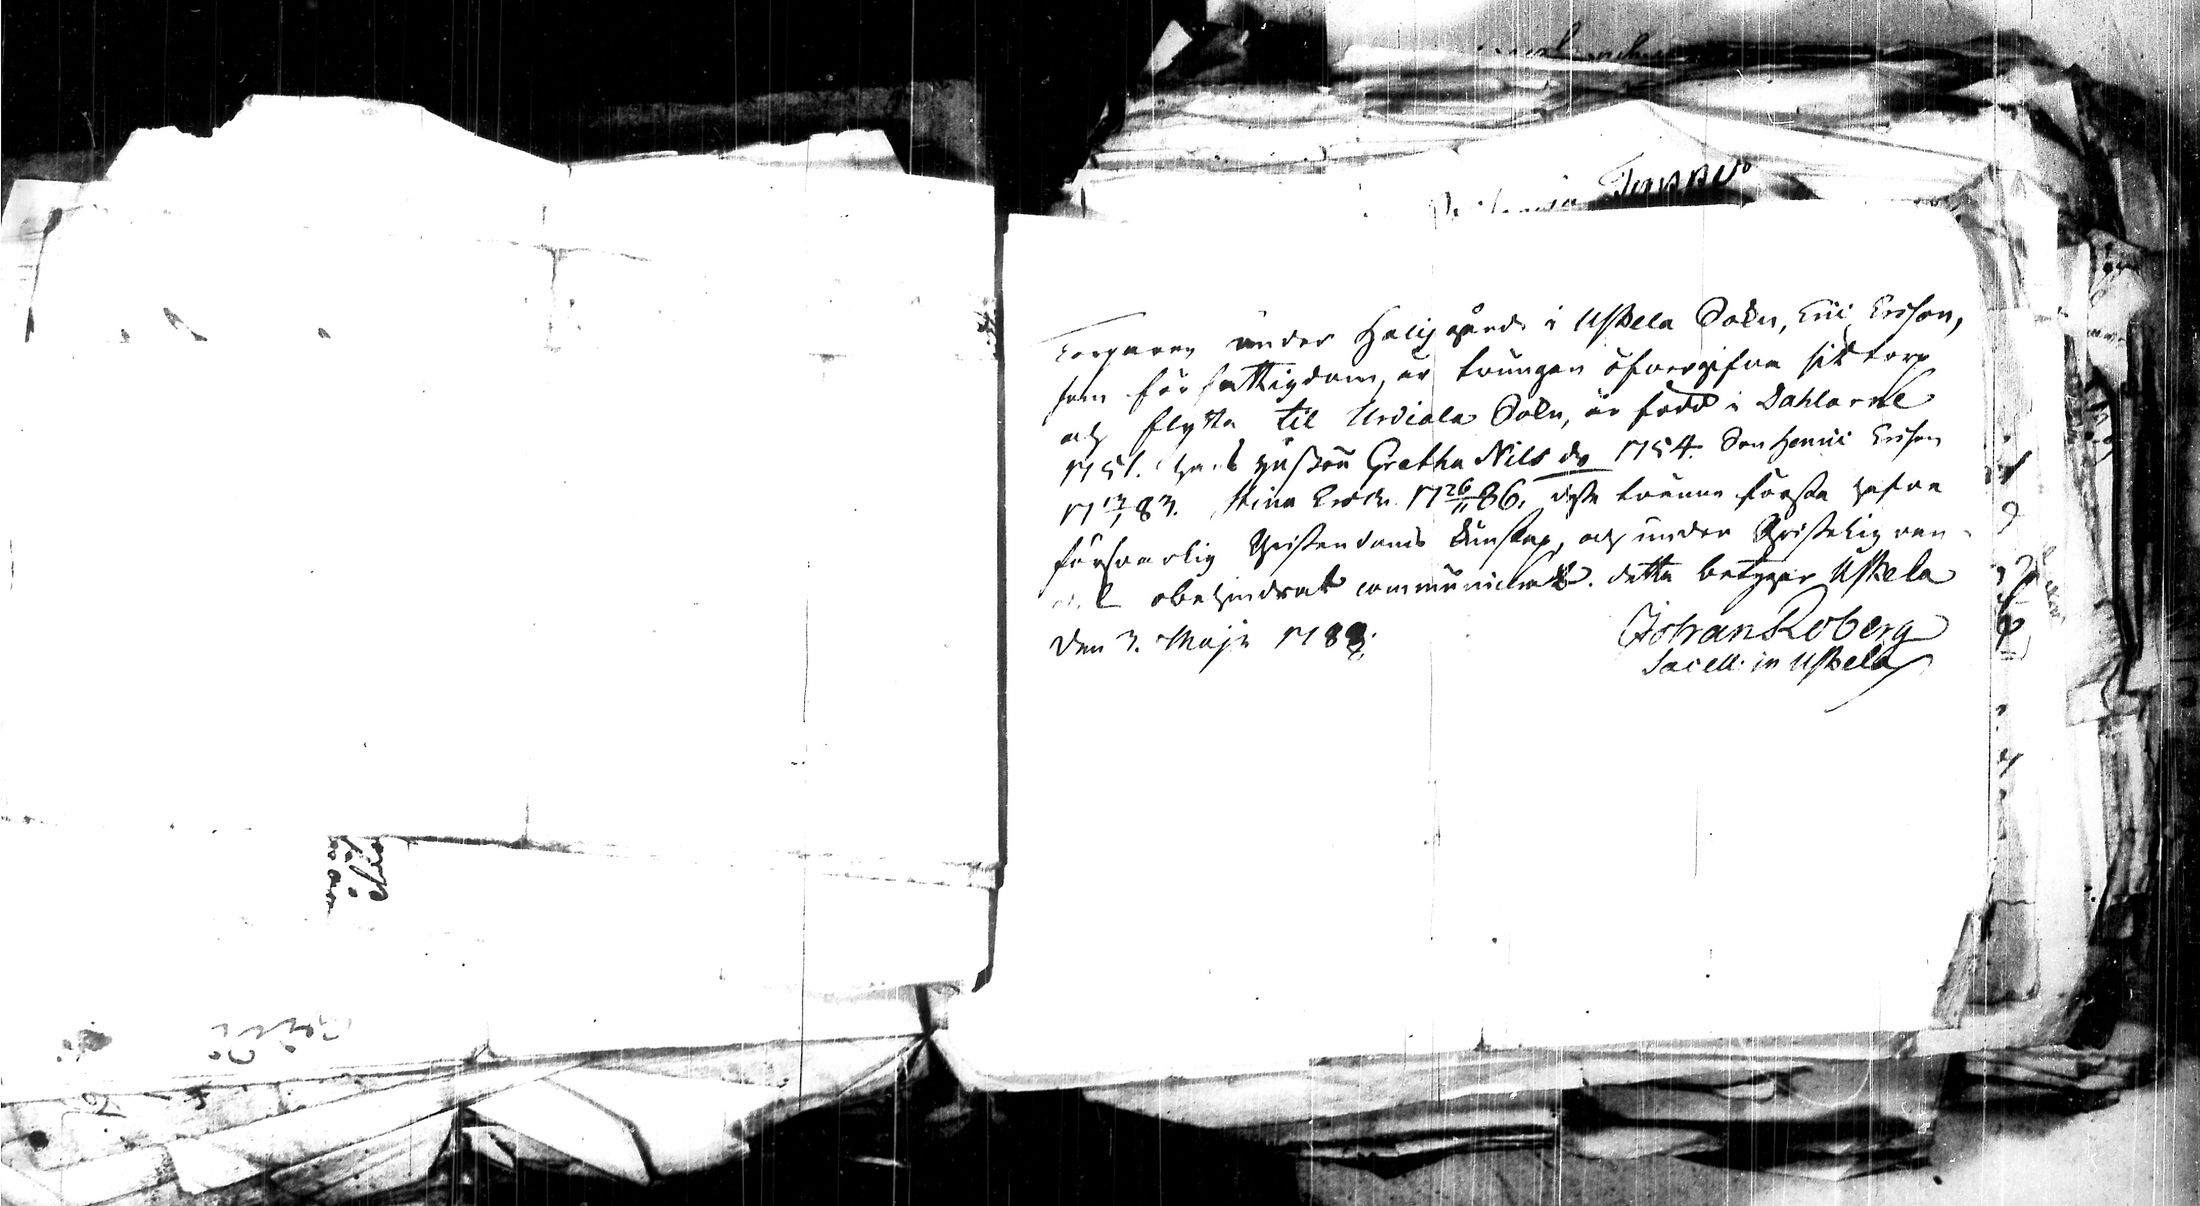 Torparen under Haligård i Uskela Sokn, Eric Ersson,
som för fattigdom, är tvungen öfvergifva sit torp
och flytta til Urdiala Sokn, är född i Dahlarne
1751. hans hustru Gretha Nils dr 1754. Son Henric Ersson
17 13/1 83. Stina Ersdr. 17 26/11 86. desse tvenne första hafva
försvarlig Christendoms kunskap, och under Christelig van-
del obehindrat communicerat. detta betygar Uskela
den 3. Maji 1788.
Johan Roberg
Sacell: in Uskela